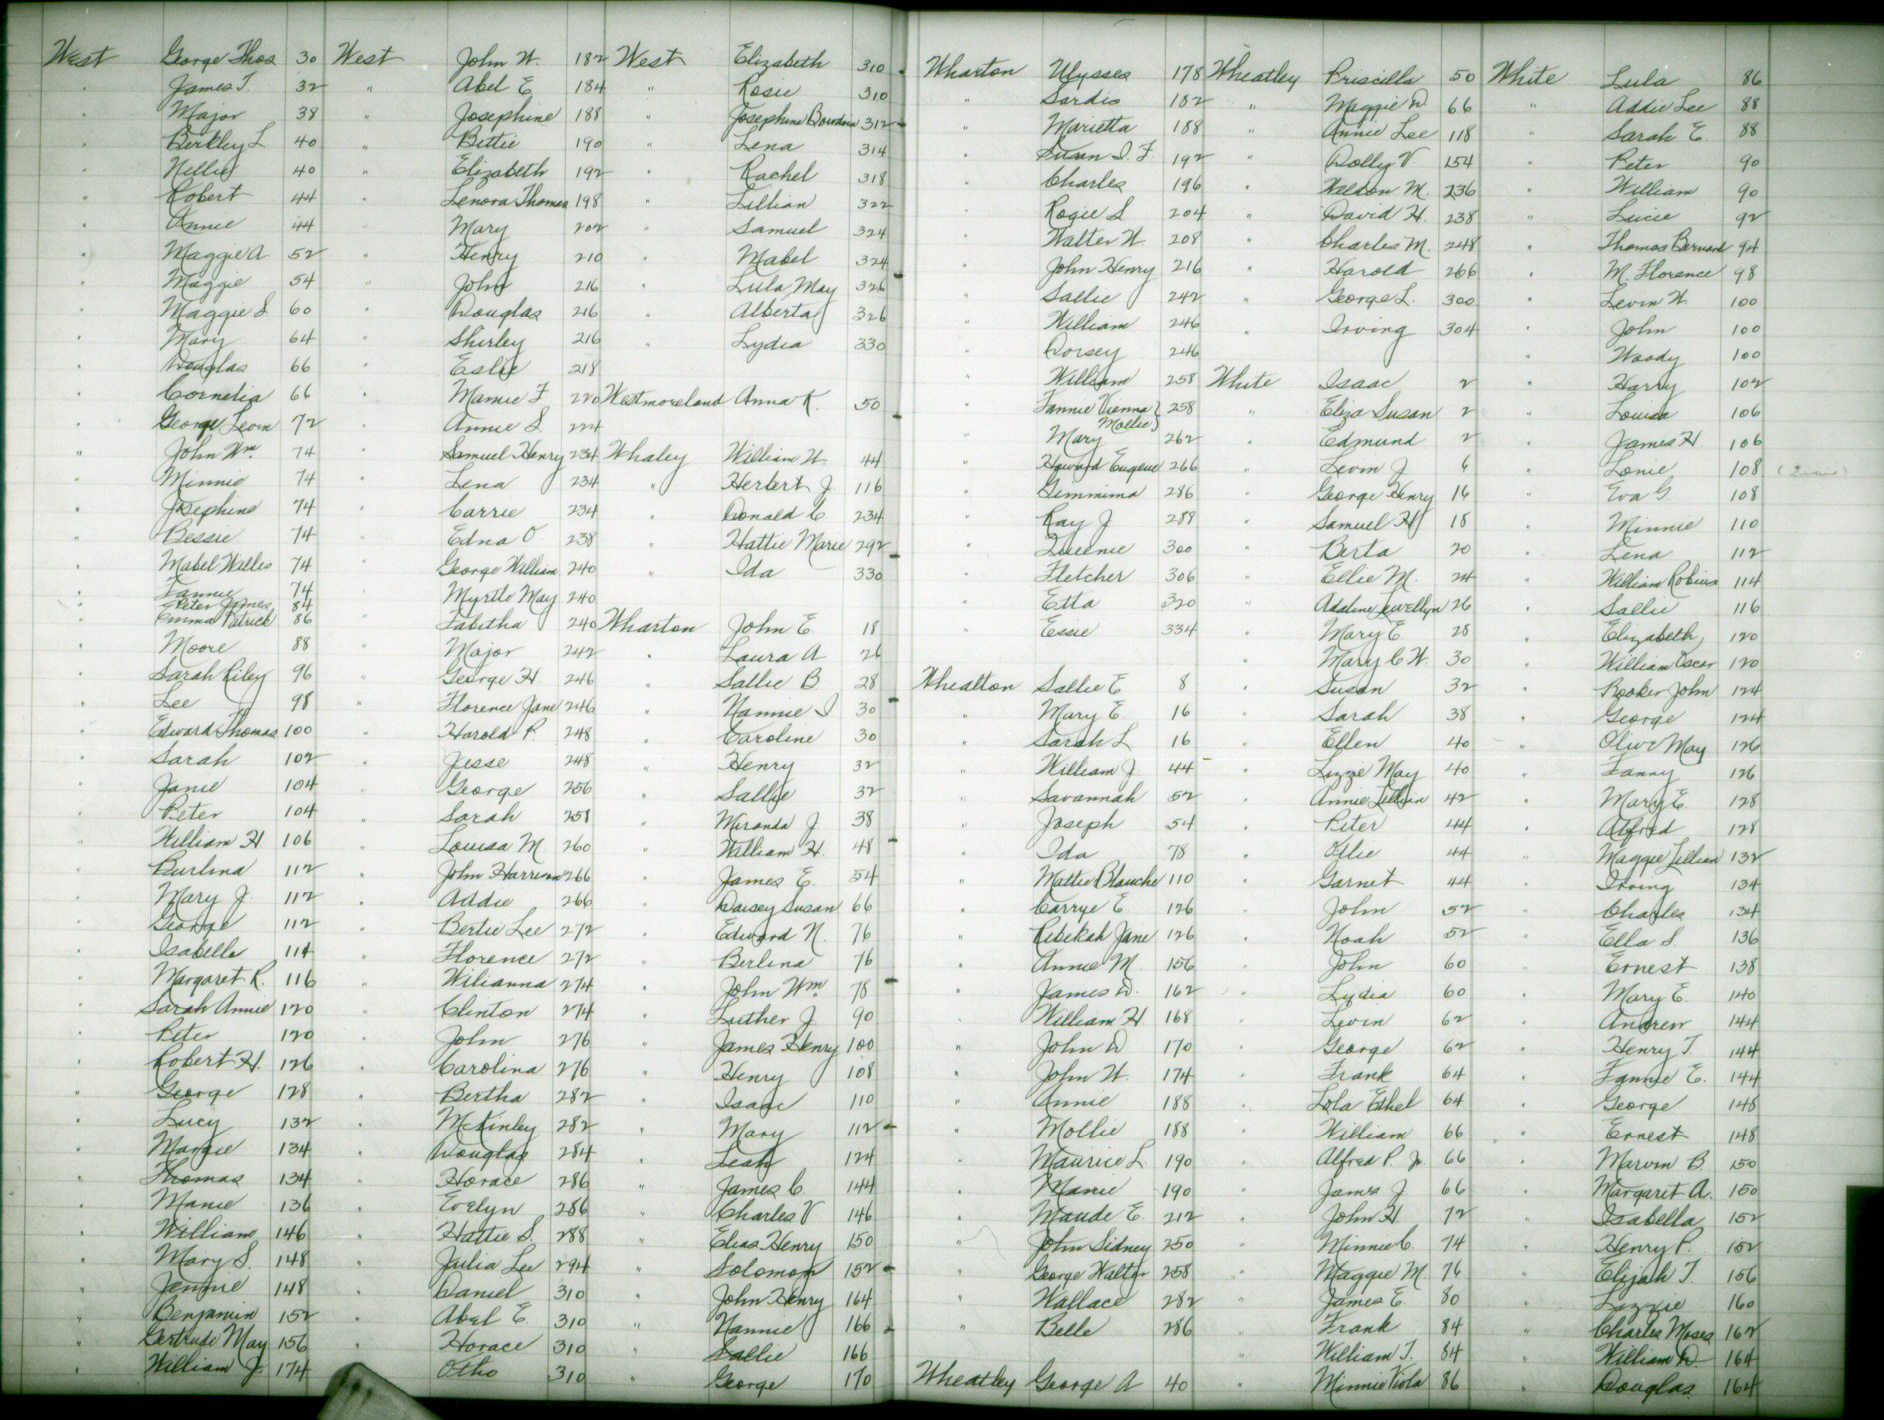 West George Thos 30
" James T. 32
" Major 38
" Berkley L 40
" Nellie 40
" Robert 44
" Annie 44
" Maggie A 52
" Maggie 54
" Maggie S 60
" Mary 64
" Douglas 66
" Cornelia 66
" George Levin 72
" John Wm 74
" Minnie 74
" Josephine 74
" Bessie 74
" Mabel Willes 74
" Fannie 74
" Peter James 84
" Emma Patrick 86
" Moore 88
" Sarah Riley 96
" Lee 98
" Edward Thomas 100
" Sarah 102
" Janie 104
" Peter 104
" William H 106
" Burlina 112
" Mary J. 112
" George 112
" Isabelle 114
" Margaret R. 116
" Sarah Annie 120
" Peter 120
" Robert H. 126
" George 128
" Lucy 132
" Margie 134
" Thomas 134
" Manie 136
" William 146
" Mary S. 148
" Jennie 148
" Benjamin 152
" Gertrude May 156
" William J. 174
West John W. 182
" Abel E. 184
" Josephine 188
" Bettie 190
" Elizabeth 192
" Lenora Thomas 198
" Mary 202
" Henry 210
" John 216
" Douglas 216
" Shirley 216
" Eslie 218
" Mamie F 220
" Annie S. 224
" Samuel Henry 234
" Lena 234
" Carrie 234
" Edna O. 238
" George William 240
" Myrtle May 240
" Tabitha 240
" Major 242
" George H. 246
" Florence Jane 246
" Harold P. 248
" Jesse 248
" George 256
" Sarah 258
" Louisa M. 260
" John Harrison 266
" Addie 266
" Bertie Lee 272
" Florence 272
" Wilianna 274
" Clinton 274
" John 276
" Carolina 276
" Bertha 282
" McKinley 282
" Douglas 284
" Horace 286
" Evelyn 286
" Hattie S. 288
" Julia Lee 294
" Daniel 310
" Abel E. 310
" Horace 310
" Otho 310
West Elizabeth 310
" Rosie 310
" Josephine 312
" Lena 314
" Rachel 318
" Lillian 322
" Samuel 324
" Mabel 324
" Lula May 326
" Alberta 326
" Lydia 330
Westmoreland Anna K. 50
Whaley William W. 44
" Herbert J. 116
" Donald C. 234
" Hattie Marie 292
" Ida 330
Wharton John E. 18
" Laura A 26
" Sallie B 28
" Nannie I 30
" Caroline 30
" Henry 32
" Sallie 32
" Miranda J 38
" William H. 48
" James E. 54
" Daisey Susan 66
" Edward N. 76
" Berlina 76
" John Wm 78
" Luther J. 90
" James Henry 100
" Henry 108
" Isaac 110
" Mary 112
" Leah 124
" James C 144
" Charles V 146
" Elias Henry 150
" Solomon 152
" John Henry 164
" Nannie 166
" Sallie 166
" George 170
Wharton Ulysses 178
" Sardis 182
" Marietta 188
" Susan I. F. 192
" Charles 196
" Rogie S 204
" Walter W 208
" John Henry 216
" Sallie 242
" William 246
" Dorsey 246
" William 258
" Fannie Vienna 258
" Mary Mollie 262
" Howard Eugene 266
" Gemmima 286
" Ray J 289
" Queenie 300
" Fletcher 306
" Etta 320
" Essie 334
Whealton Sallie E 8
" Mary E. 16
" Sarah L 16
" William J 44
" Savannah 52
" Joseph 54
" Ida 78
" Mattie Blanche 110
" Carrye E 126
" Rebekah Jane 126
" Annie M. 156
" James D. 162
" William H 168
" John D 170
" John W. 174
" Annie 188
" Mollie 188
" Maurice L. 190
" Manie 190
" Maude E. 212
" John Sidney 250
" George Walter 258
" Wallace 282
" Belle 286
Wheatley George A 40
Wheatley Priscilla 50
" Maggie D. 66
" Annie Lee 118
" Dolly V. 154
" Weldon M. 236
" David H. 238
" Charles M. 248
" Harold 266
" George L. 300
" Irving 304
White Isaac 2
" Eliza Susan 2
" Edmund 2
" Levin J 6
" George Henry 16
" Samuel H 18
" Berta 20
" Ellie M. 24
" Adeline Lewellyn 26
" Mary E. 28
" Mary C W. 30
" Susan 32
" Sarah 38
" Ellen 40
" Lizzie May 40
" Annie Lillian 42
" Peter 44
" Ollie 44
" Garnet 44
" John 52
" Noah 52
" John 60
" Lydia 60
" Levin 62
" George 62
" Frank 64
" Lola Ethel 64
" William 66
" Alfred P. Jr 66
" James J 66
" John H 72
" Minnie C. 74
" Maggie M. 76
" James E. 80
" Frank 84
" William T. 84
" Minnie Viola 86
White Lula 86
" Addie Lee 88
" Sarah E. 88
" Peter 90
" William 90
" Lucie 92
" Thomas Bernard 94
" M. Florence 98
" Levin W. 100
" John 100
" Woody 100
" Harry 102
" Louisa 106
" James H 106
" Lonie 108
" Eva G. 108
" Minnie 110
" Lena 112
" William Robins 114
" Sallie 116
" Elizabeth 120
" William Oscar 120
" Rooker John 124
" George 124
" Olive May 126
" Fanny 126
" Mary E. 128
" Alfred 128
" Maggie Lillian 132
" Irving 134
" Charles 134
" Ella S. 136
" Ernest 138
" Mary E. 140
" Andrew 144
" Henry T. 144
" Fannie E. 144
" George 148
" Ernest 148
" Marvin B. 150
" Margaret A. 150
" Isabella 152
" Henry P. 152
" Elijah T. 156
" Lizzie 160
" Charles Moses 162
" William D 164
" Douglas 164